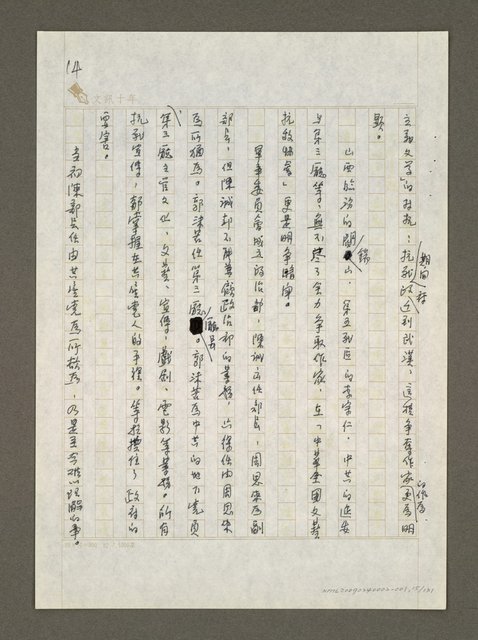 14
文訊十年
主義文學」的對抗；抗戰期間政府遷到武漢，這種爭奪作家的作為更為明
顯。
山西臨汾的閻錫山，第五戰區的李宗仁，中共的延安
與第三廳等，無不盡了全力爭取作家，在「中華全國文藝
抗敵協會」更是明爭暗鬥。
軍事委員會成立政治部，陳誠出任部長，周恩來為副
部長，但陳誠却不
為所欲為。郭沫若任第三廳廳長。郭沫若為中共的地下黨員
第三廳主管文化、文藝、宣傳、戲劇、電影等業務。所有
抗戰宣傳，都掌握在共產黨人的手裡。等於攬住了政府的
要害。
當初陳部長任由共產黨為所欲為，乃是至今難以理解的事。